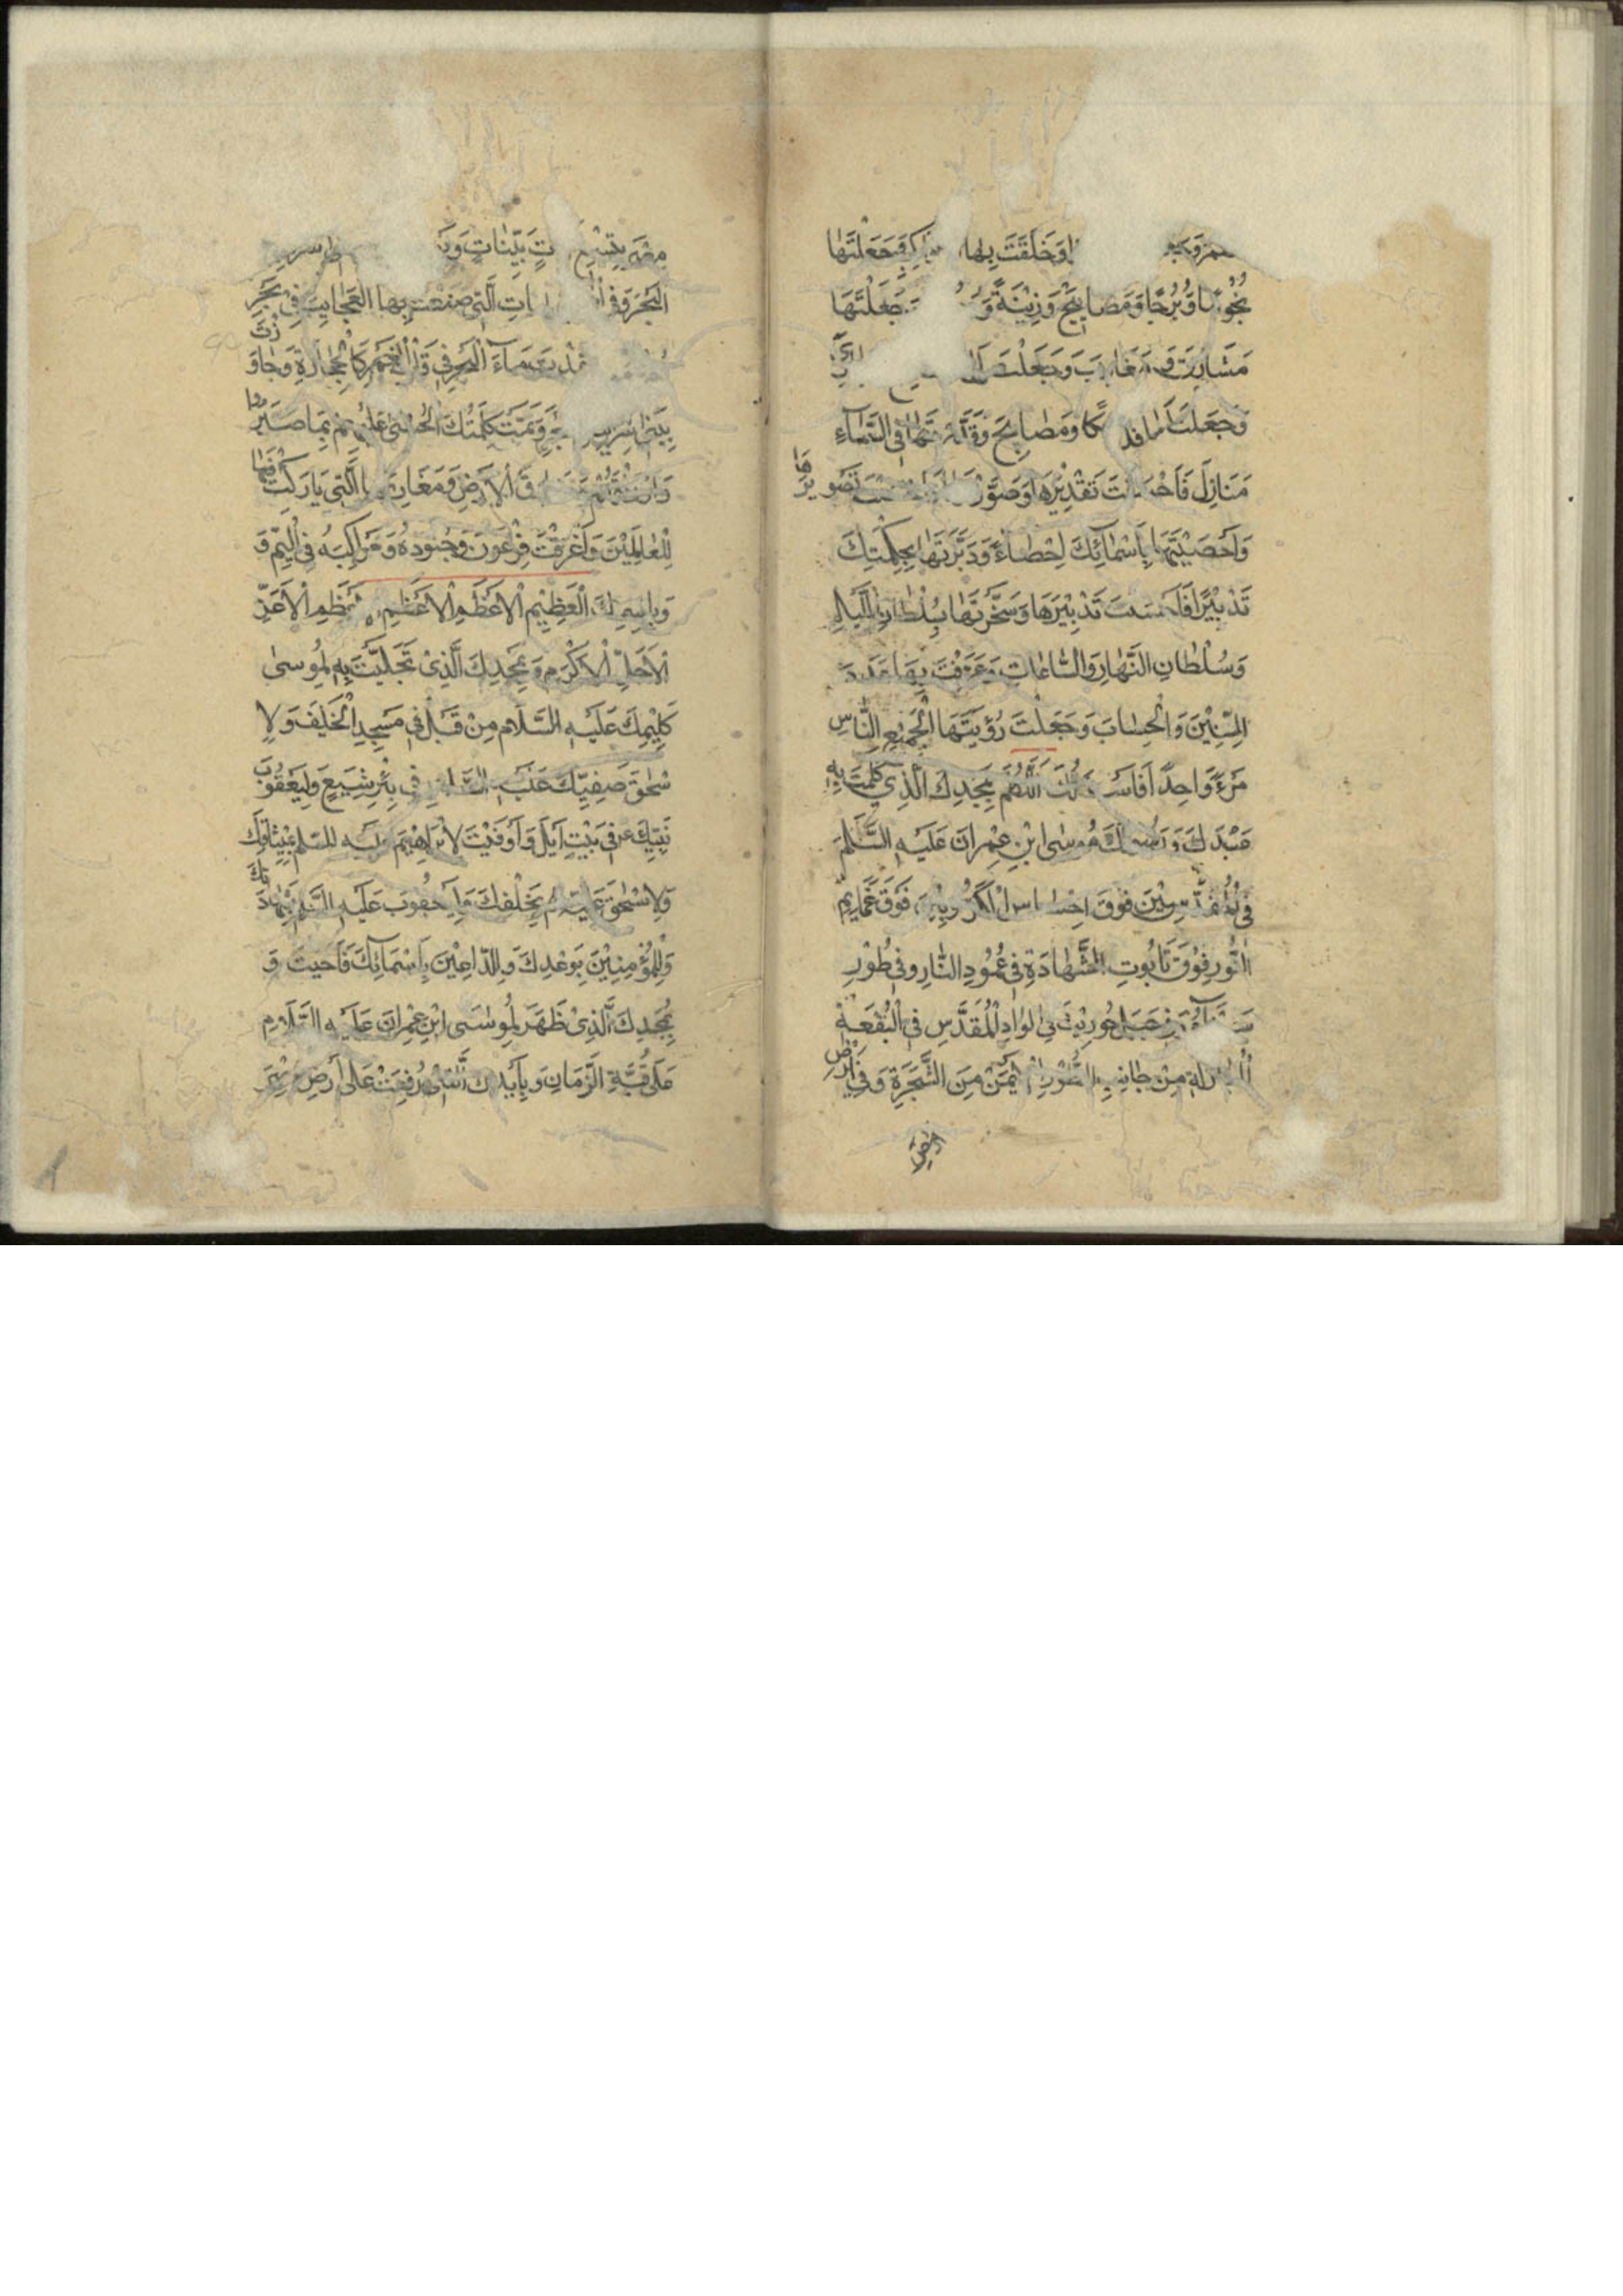 وَخَلَقْتَ بِهَا كَوَاكِبَ فَجَعَلْتَهَا
نُجُومًا وَبُرُجًا وَمَصَابِيحَ وَزِيْنَةً وَ جَعَلْتَهَا
مَشَارِقَ وَمَغَارِبَ وَجَعَلْتَ
وَجَعَلْتَ لَهَا فَلَكًا وَمَصَابِحَ وَقَدَّرْتَهَا فِي السَّمَاءِ
مَنَازِلَ فَاَحْسَنْتَ تَقْدِيْرَهَا وَصَوَّرْتَهَا فَاَحْسَنْتَ تَصْوِيرَهَا
وَاَحْصَيْتَهَا بِاَسْمَائِكَ اِحْصَاءً وَدَبَّرْتَهَا بِحِكْمَتِكَ
تَدْبِيْرًا فَاَحْسَنْتَ تَدْبِيْرَهَا وَسَخَّرْتَهَا بِسُلْطَانِ اللَّيْلِ
وَسُلْطَانِ النَّهَارِ وَالسَّاعَاتِ وَعَرَّفْتَ بِهَا عَدَدَ
السِّنِيْنَ وَالْحِسَابَ وَجَعَلْتَ رُؤْيَتَهَا لِجَمِيْعِ النَّاسِ
مَرْءً وَاحِدًا فَاَسْئَلُكَ اللّٰهُمَّ بِمَجْدِكَ الَّذِي كَلَّمْتَ بِهِ
عَبْدَكَ وَرَسُولَكَ مُوسَى ابْنِ عِمْرَانَ عَلَيْهِ السَّلَمُ
فِي الْمُقَدَّسِيْنَ فَوْقَ اِحْسَاسِ الْكَرُّوبِيْنَ فَوْقَ غَمَايِمِ
النُّورِ فَوْقَ تَابُوتِ الشَّهَادَةِ فِي عُمُودِ النَّارِ وَفِي طُوْرِ
سَيْنَاءَ وَفِي جَبَلِ حُورِيْثَ فِي الْوَادِ الْمُقَدَّسِ فِي الْبُقْعَةِ
الْمُبَارَكَةِ مِنْ جَانِبِ الطُّوْرِ الْاَيْمَنِ مِنَ الشَّجَرَةِ وَفِي اَرْضِ
مِصْرَ بِتِسْعِ اٰيَاتٍ بَيِّنَاتٍ وَيَوْمَ
الْبَحْرَ وَفِي الْمُنْبَجِسَاتِ الَّتِي صَنَعْتَ بِهَا الْعَجَايِبَ فِيْ بَحْرِ
عَقَدْتَ مَاءَ الْبَحْرِ فِي قَلْبِ الْغَمْرِ كَالْحِجَارَةِ وَجَاوَزْتَ
بِبَنِي اِسْرَائِيلَ الْبَحْرَ وَتَمَّتْ كَلِمَتُكَ الْحُسْنَى عَلَيْهِمْ بِمَا صَبَرُوا
وَاَوْرَثْتَهُمْ مَشَارِقَ الْاَرْضِ وَمَغَارِبَهَا الَّتِي بَارَكْتَ فِيْهَا
لِلْعَالَمِيْنَ وَاَغْرَقْتَ فِرْعَوْنَ وَجُنُودَهُ وَمَرَاكِبَهُ فِي الْيَمِّ وَ
وَبِاسْمِكَ الْعَظِيْمِ الْاَعْظَمِ الْاَعْظَمِ الْاَعْظَمِ الْاَعَزِّ
الْاَجَلِّ الْاَكْرَمِ وَبِمَجْدِكَ الَّذِيْ تَجَلَّيْتَ بِهِ لِمُوسَى
كَلِيْمِكَ عَلَيْهِ السَّلَام مِنْ قَبْلُ فِي مَسْجِدِ الْخَيْفِ وَلِاِ
سْحٰقَ صَفِيِّكَ عَلَيْهِ السَّلَامِ فِي بِئْرِ شِيَعٍ وَلِيَعْقُوْبَ
نَبِيِّكَ فِي بَيْتِ اِيْلَ وَاَوْفَيْتَ لِاِبْرَاهِيْمَ عَلَيْهِ السَّلم بِمِيْثَاقِكَ
وَلِاِسْحٰقَ عَلَيْهِ السَّلَم بِحَلْفِكَ وَلِيَعْقُوبَ عَلَيْهِ السَّلَم بِشَهَادَتِكَ
وَلِلْمُؤْمِنِيْنَ بِوَعْدِكَ وَلِلدَّاعِيْنَ بِاَسْمَائِكَ فَاَجَبْتَ وَ
بِمَجْدِكَ الَّذِيْ ظَهَرَ لِمُوسَى ابْنِ عِمْرَانَ عَلَيْهِ السَّلَامِ
عَلَى قُبَّةِ الزَّمَانِ وَبِاَيْدِكَ الَّتِيْ رُفِعَتْ عَلَى اَرْضِ مِصْرَ